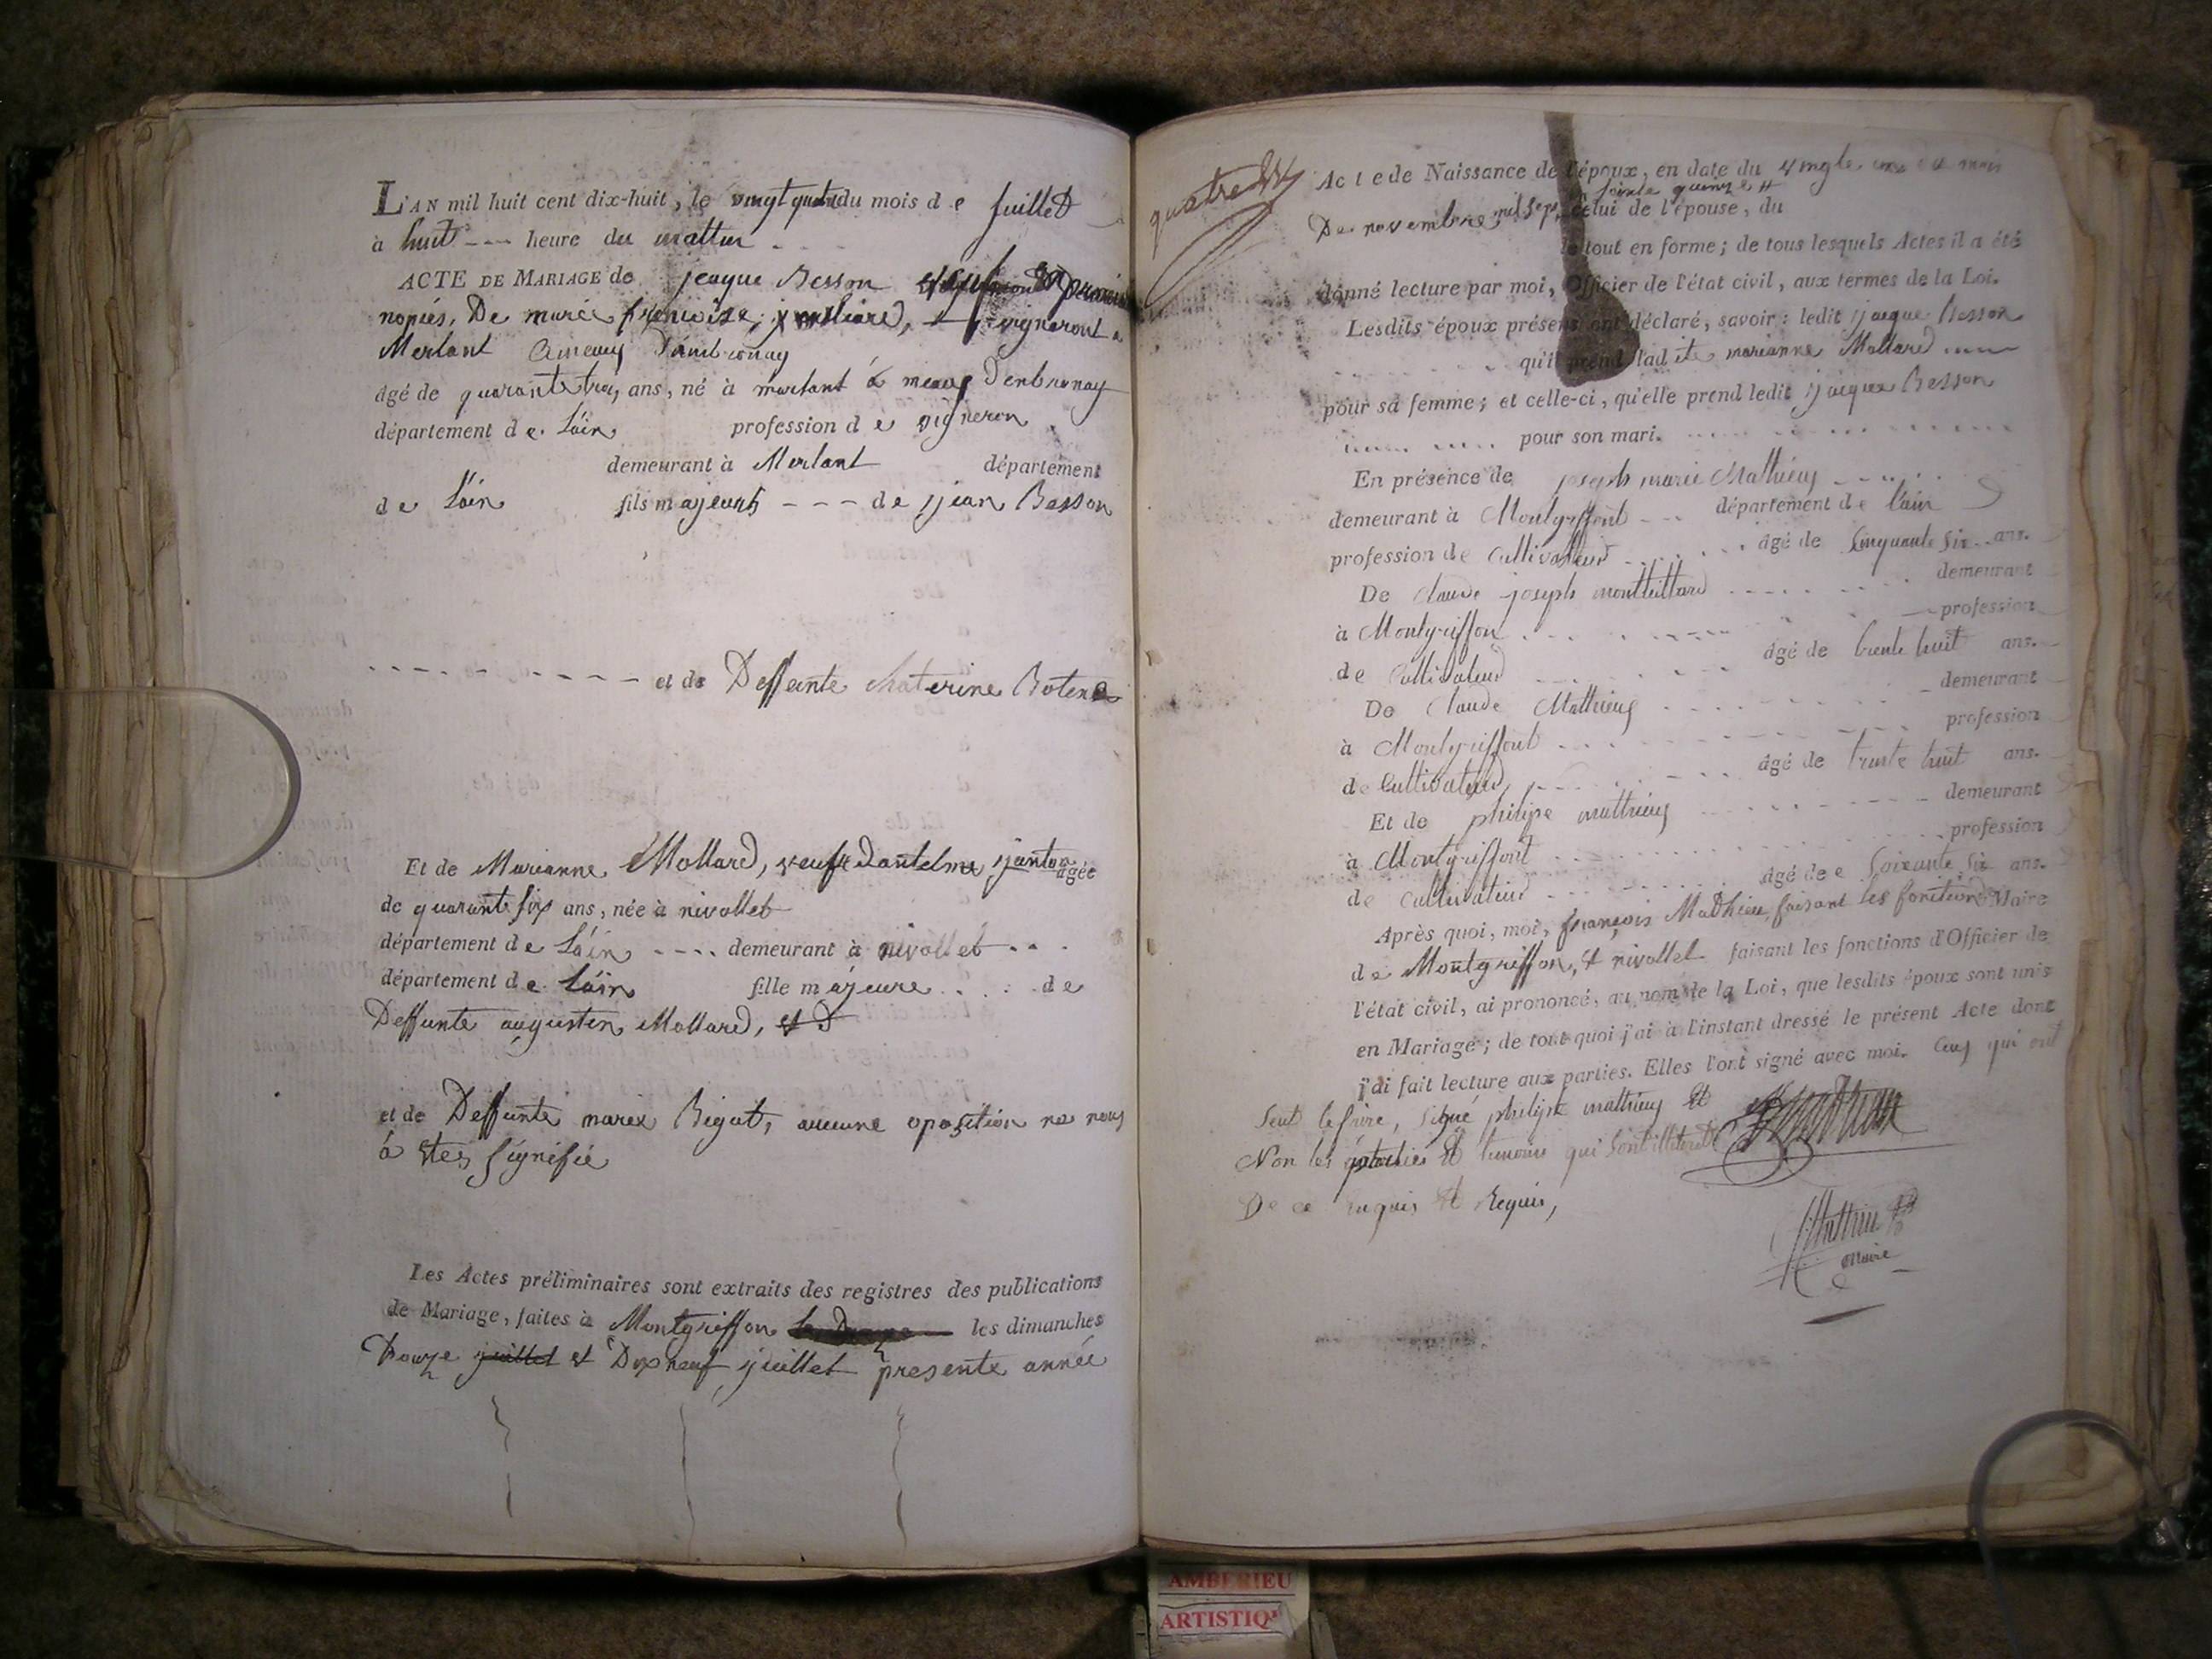 L'AN mil huit cent dix-huit, le vingt quatre du mois de juillet
à huit --- heure du mattin
ACTE DE MARIAGE de jeaque Besson
nopies, De marie frencoise, vigneront a
Merlant
âgé de quarante troy ans, né à marlant Denbronay
département de Láin profession de vigneron
demeurant à Merlant département
de Láin fils majeurs --- de jjean Besson
et de Deffeinte Katerine
Et de Marianne Mollard, veufe dantelme jjanton âgée
de quarante six ans, née à nivollet
département de Láin ---- demeurant à nivollet
département de Láin fille majeure de
Deffunte augustin Mollard, et D
et de Deffunte marie Bigot, aucune oposition ne nous
á Etes signifié
Les Actes préliminaires sont extraits des registres des publications
de Mariage, faites à Montgriffon les dimanches
Douze juillet et Dixneuf juillet presente année
Acte de Naissance de l'époux, en date du
soixte quinze et
De novembre mil sept celui de l'épouse, du
le tout en forme; de tous lesquels Actes il a été
donné lecture par moi, Officier de l'état civil, aux termes de la Loi.
Lesdits époux présens ont déclaré, savoir: ledit jjacque Besson
qu'il prend ladite marianne Mollard
pour sa femme; et celle-ci, qu'elle prend ledit jjacque Besson
pour son mari.
En présence de joseph marie Mathieuy
demeurant à Montgriffont département de Láin
profession de Cultivateur âgé de Cinquante six ans.
De Claude joseph demeurant
à Montgriffon profession
de Cultivateur âgé de trente huit ans.
De Claude Matthieuy demeurant
à Montgriffont profession
de Cultivateur âgé de trente huit ans.
Et de philipe matthieuy demeurant
à Montgriffont profession
de Cultivateur âgé de soixante six ans.
Après quoi, moi, françois Mathieu faisant les fonctions Maire
de Montgriffon, et nivollet faisant les fonctions d'Officier de
l'état civil, ai prononcé, au nom de la Loi, que lesdits époux sont unis
en Mariage; de tout quoi j'ai à l'instant dressé le présent Acte dont
j'ai fait lecture aux parties. Elles l'ont signé avec moi. Ceuy qui ont
Seut le faire, signé philipe mathieuy et
Non les parties et temoins qui sont illiteré
De ce enquis et Requis,
Maire
AMBERIEU
ARTISTIQ